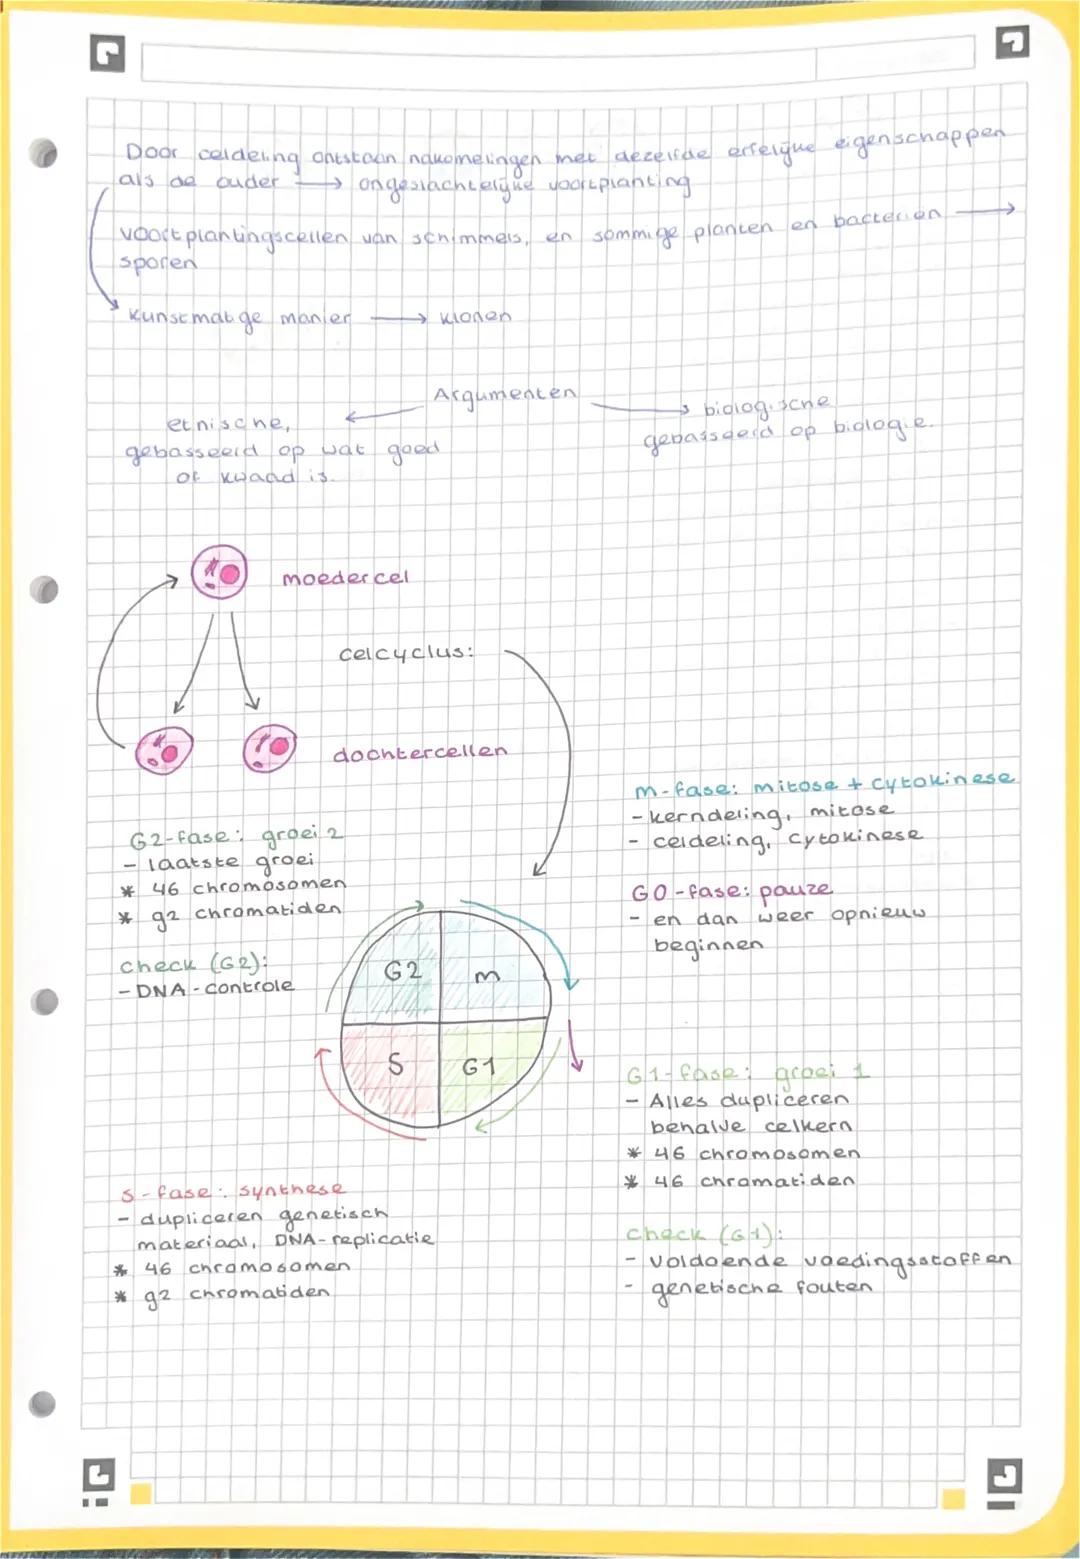 Door celdeling ontstaan nakomelingen met dezelfde erfelijke eigenschappen
als de ouder → ongeslachtelijke voortplanting
voortplantingscellen van schimmels, en sommige planten en bacteriën →
sporen
kunstmatige manier → klonen
Argumenten
etnische,
gebasseerd op wat goed
of kwaad is.
biologische
gebasseerd op biologie.
moedercel
celcyclus:
dochtercellen
m-fase: mitose + cytokinese
- kerndeling, mitose
- celdeling, cytokinese
G0-fase: pauze
- en dan weer opnieuw
beginnen
G2-fase: groei 2
- laatste groei
* 46 chromosomen
* 92 chromatiden
check (G2):
- DNA-controle
G2
m
S
G1
G1-fase: groei 1
- Alles dupliceren
behalve celkern
* 46 chromosomen
* 46 chromatiden
check (G1):
- voldoende voedingsstoffen
- genetische fouten
S-fase: synthese
- dupliceren genetisch
materiaal, DNA-replicatie
* 46 chromosomen
* 92 chromatiden